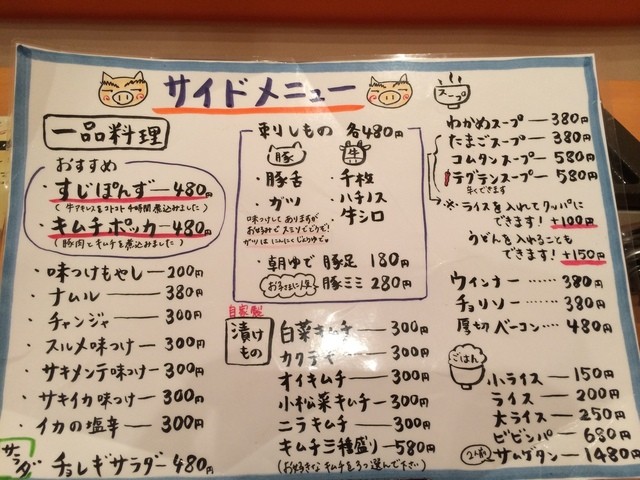 サイドメニュー
一品料理
おすすめ
・すじぽんず—480円
(牛アキレスをコトコト4時間煮込みました)
・キムチポッカ—480円
(豚肉とキムチを煮込みました)
・味つけもやし—200円
・ナムル—380円
・チャンジャ—300円
・スルメ味つけ—300円
・サキメンテ味つけ—300円
・サキイカ味つけ—300円
・イカの塩辛—300円
サラダ
チョレギサラダ—480円
刺しもの 各480円
豚
・豚舌
・ガツ
牛
・千枚
・ハチノス
・牛シロ
味つけしてありますが
お好みで スミソでどうぞ!
ガツは にんにくじょうゆで。
・朝ゆで 豚足 180円
豚ミミ 280円
自家製
漬けもの
白菜キムチ—300円
カクテキ—300円
オイキムチ—300円
小松菜キムチ—300円
ニラキムチ—300円
キムチ三種盛り—580円
(お好きなキムチを3つ選んで下さい)
スープ
わかめスープ—380円
たまごスープ—380円
コムタンスープ—580円
テグタンスープ—580円
辛くできます
※ライスを入れてクッパに
できます! +100円
うどんを入れることも
できます! +150円
ウィンナー……380円
チョリソー……380円
厚切ベーコン…480円
ごはん
小ライス—150円
ライス—200円
大ライス—250円
ビビンバ—680円
サムゲタン—1480円